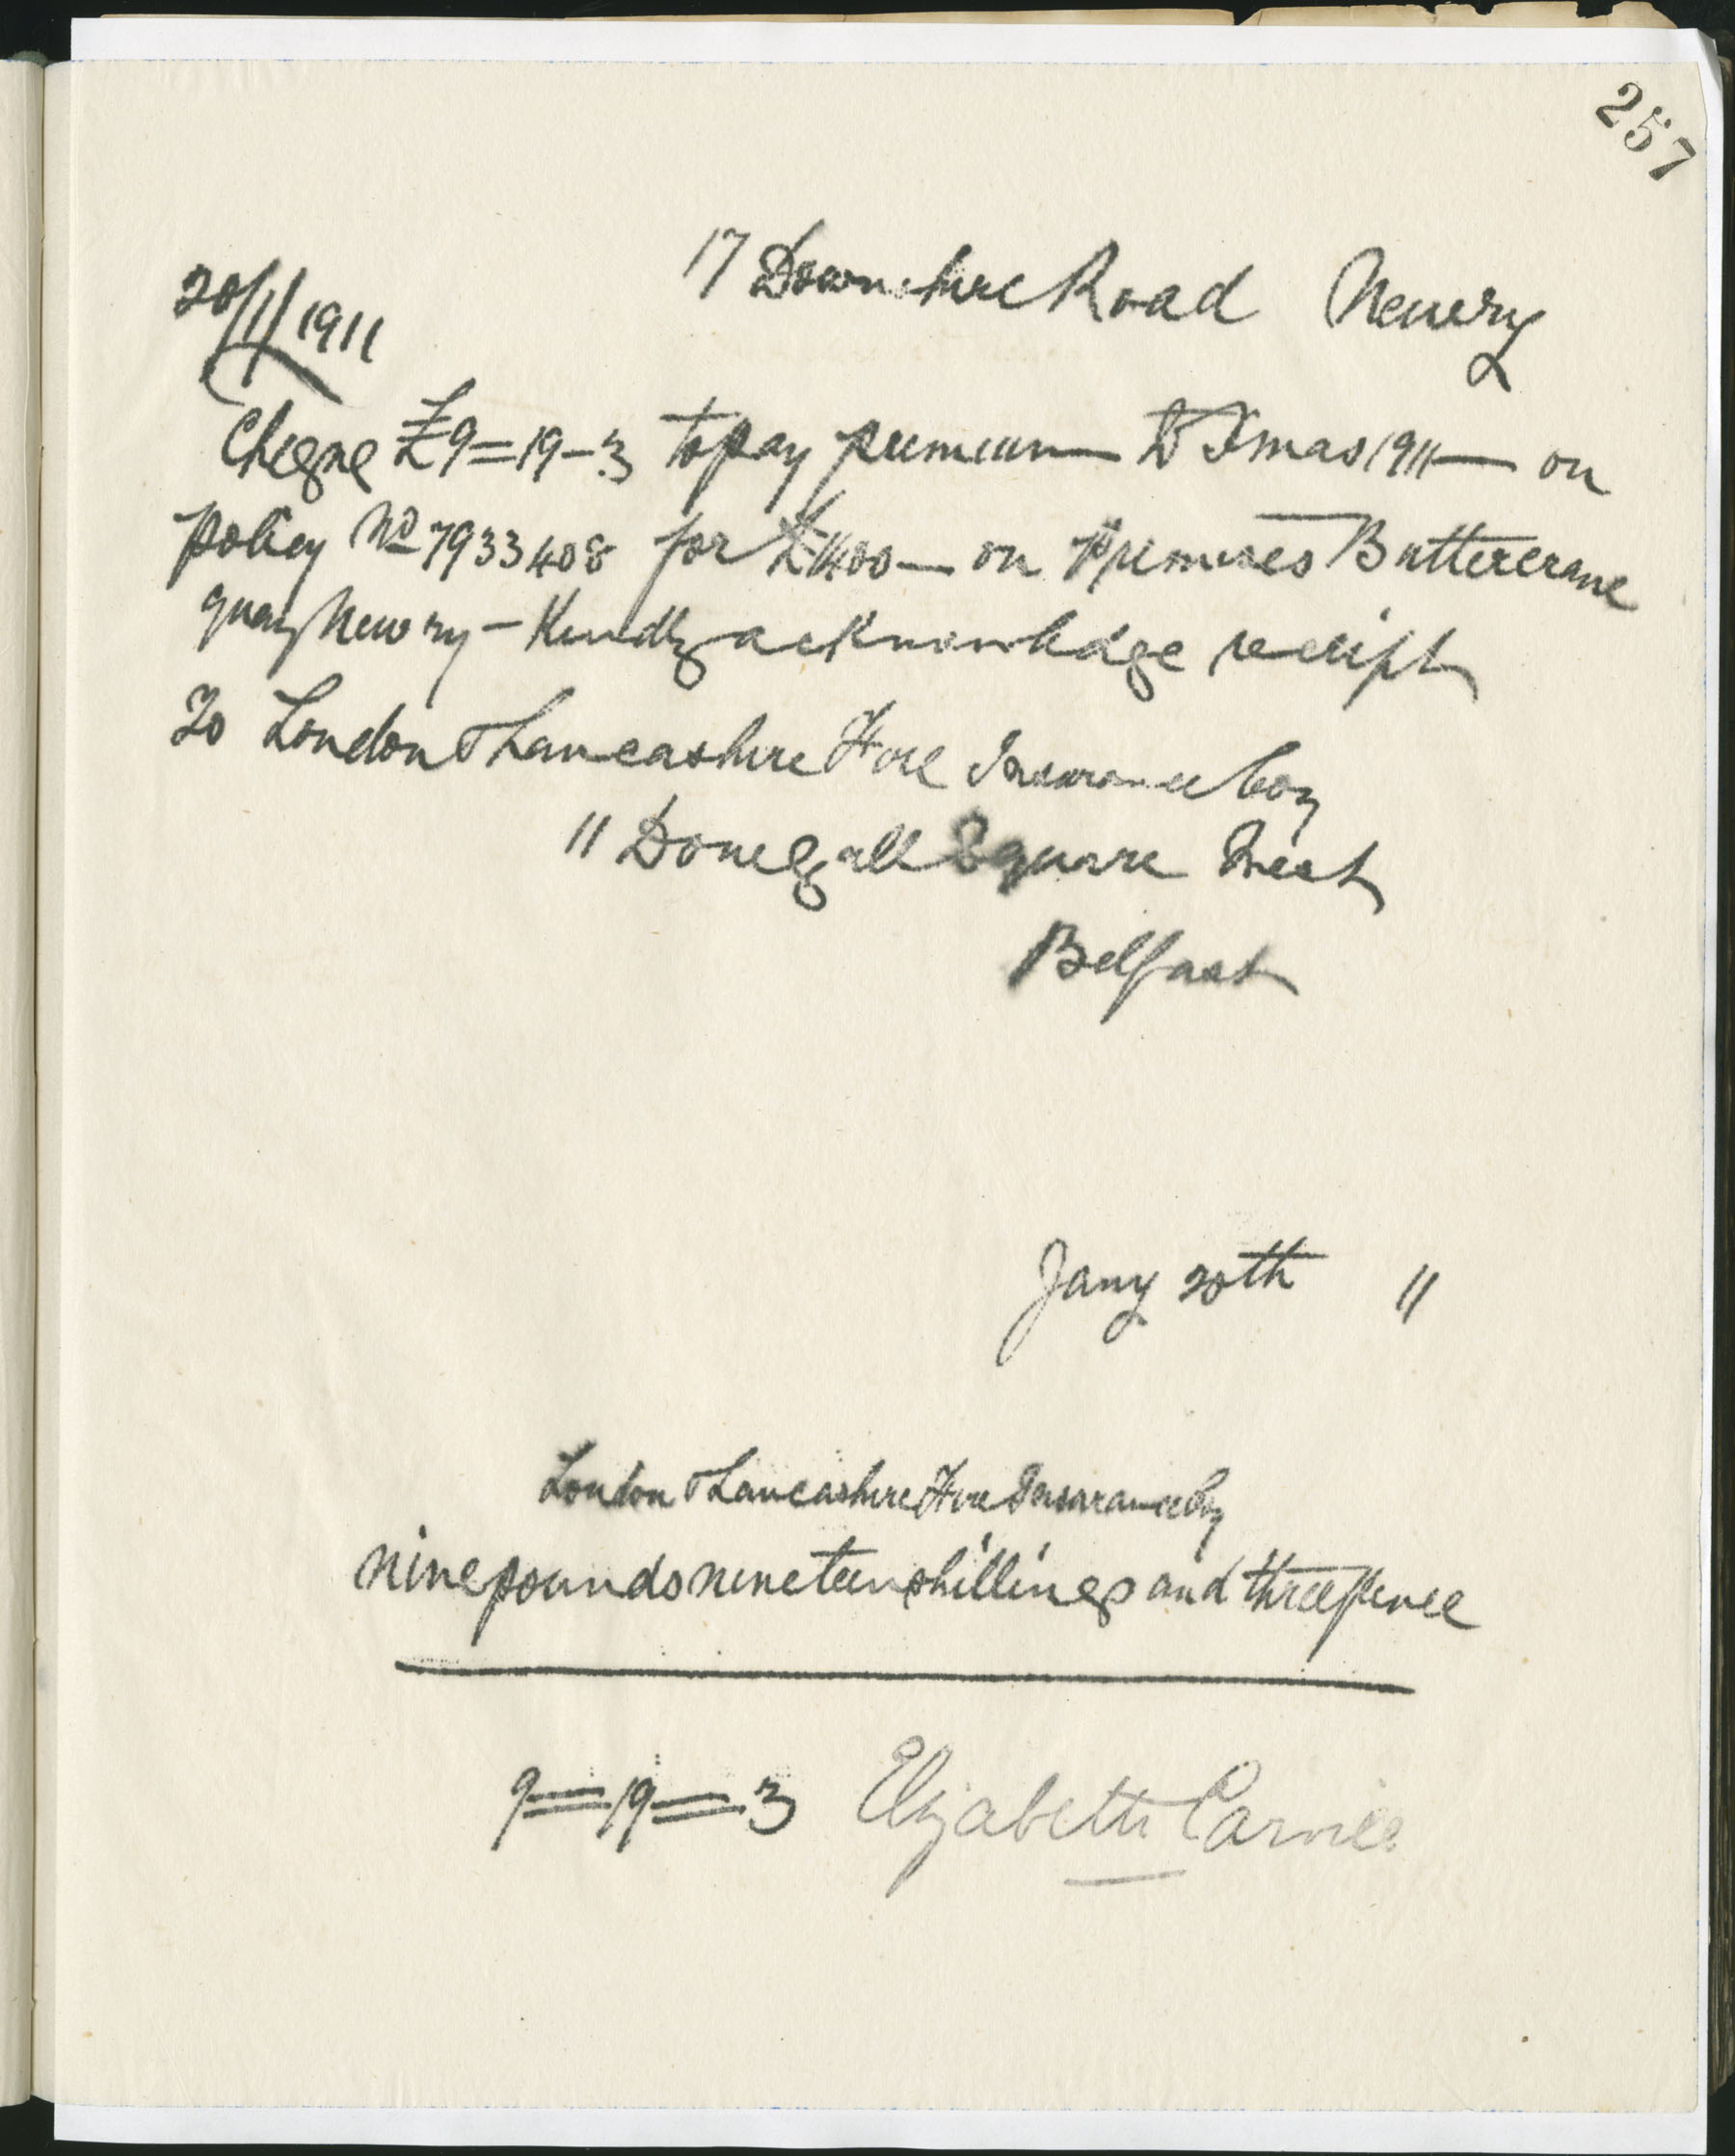 257
17 Downshire Road Newry
20/1/1911
Cheque £9=19-3 to pay premium to Xmas 1911 on
policy No 7933408 for £1400 on premises Buttercrane
quay Newry - Kindly acknowledge receipt
To London & Lancashire Fire Insurance Coy
11 Donegall Square West
Belfast
Jany 20th 11
London & Lancashire Fire Insurance Coy
nine pounds nineteen shillings and three pence
9=19=3 Elizabeth